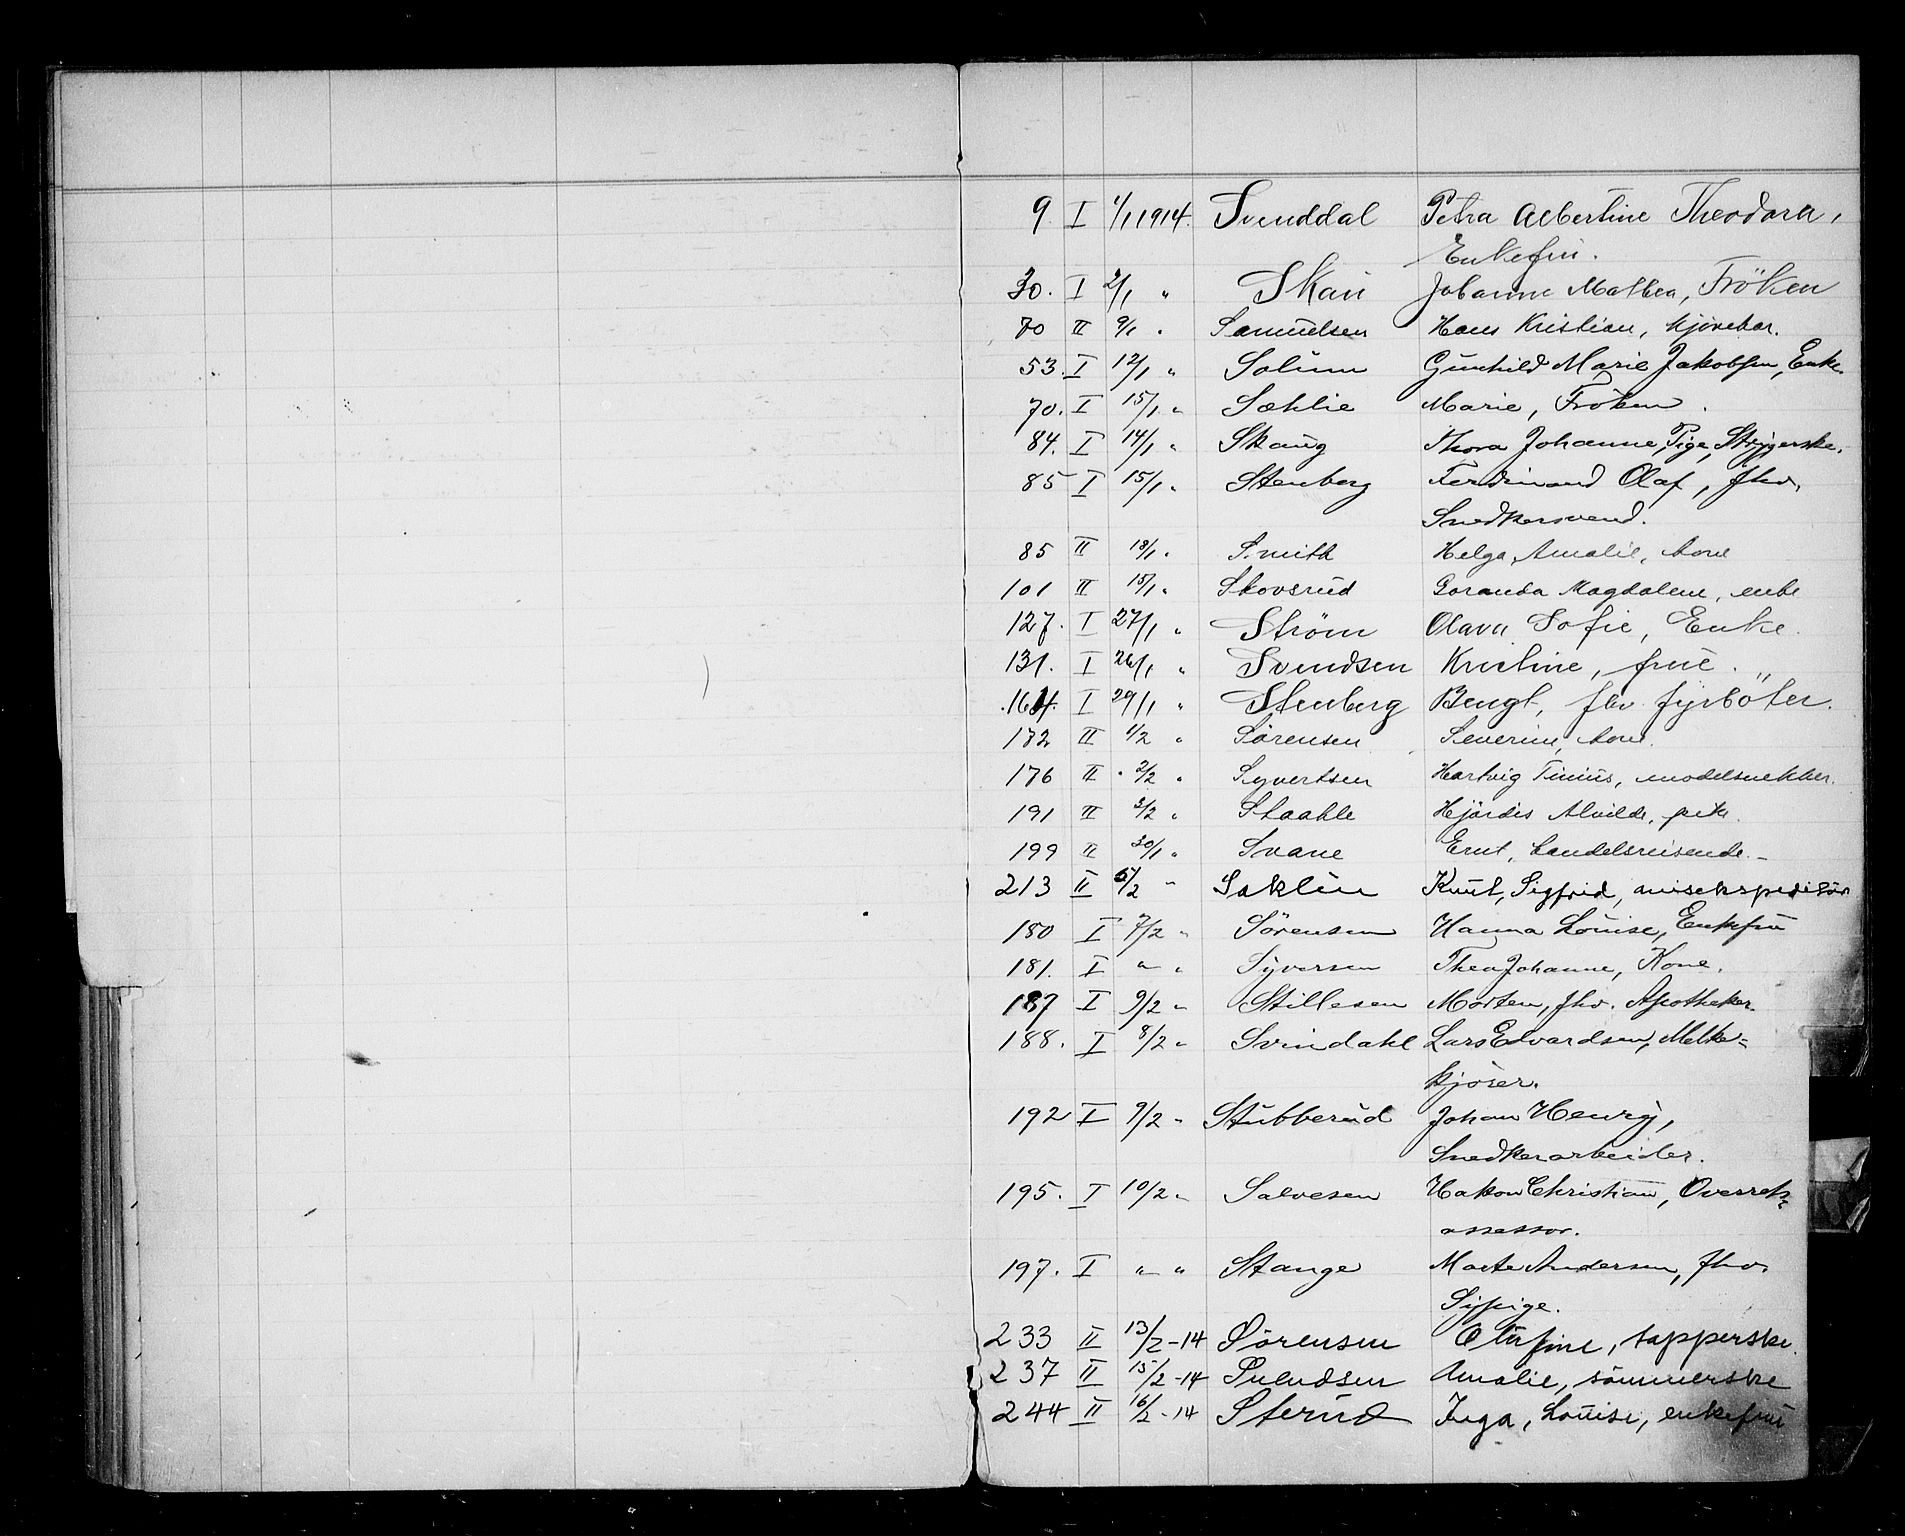 9 I 1/1 1914. Svenddal Petra Albertine Theodora,
Enkefru.
30. I 2/1 " Skau Johanne Mathea, Fröken
70 II 9/1 " Samuelsen Hans Kristian, kjörekar.
53. I 12/1 " Solum Gunhild Marie Jakobsen, Enke.
70. I 15/1 " Sæhlie Marie, Frøken.
84. I 14/1 " Skaug Thora Johanne, Pige, Strygerske.
85 I 15/1 " Stenberg Ferdinand Olaf, fhv.
Snedkersvend.
85 II 18/1 " Smith Helga Amalie, kone
101 II 15/1 " Skovsrud Magdalene, enke
127. I 27/1 " Strøm Olava Sofie, Enke.
131. I 26/1 " Svendsen Kristine, frue.
164. I 29/1 " Stenberg Bengt, fhv. fyrböter.
172 II 1/2 " Sørensen Severine, kone.
176 II 2/2 " Syvertsen Hartvig Tinius, modelsnekker.
191 II 3/2 " Staahle Hjördis Alvilde, pike.
199 II 30/1 " Svane Ernt, handelsreisende.
213 II 5/2 " Saklin Knut, Sigfrid, avisekspeditör
180 I 7/2 " Sørensen Hanna Louise, Enkefru
181. I " " Syversen Thea Johanne, Kone.
187 I 9/2 " Stillesen Morten, fhv. Apotheker.
188. I 8/2 " Svindahl Lars Edvardsen, Melke-
kjører.
192 I 9/2 " Stubberud Johan Henry,
Snedkerarbeider.
195. I 10/2 " Salvesen Hakon Christian, Overrets-
assessor.
197. I " " Stange Marte Andersen, fhv.
Sypige.
233 II 13/2-14 Sørensen Olufine, tapperske.
237 II 15/2-14 Svendsen Amalie, sömmerske
244 II 16/2-14 Sterud Inga, Louise, enkefrue